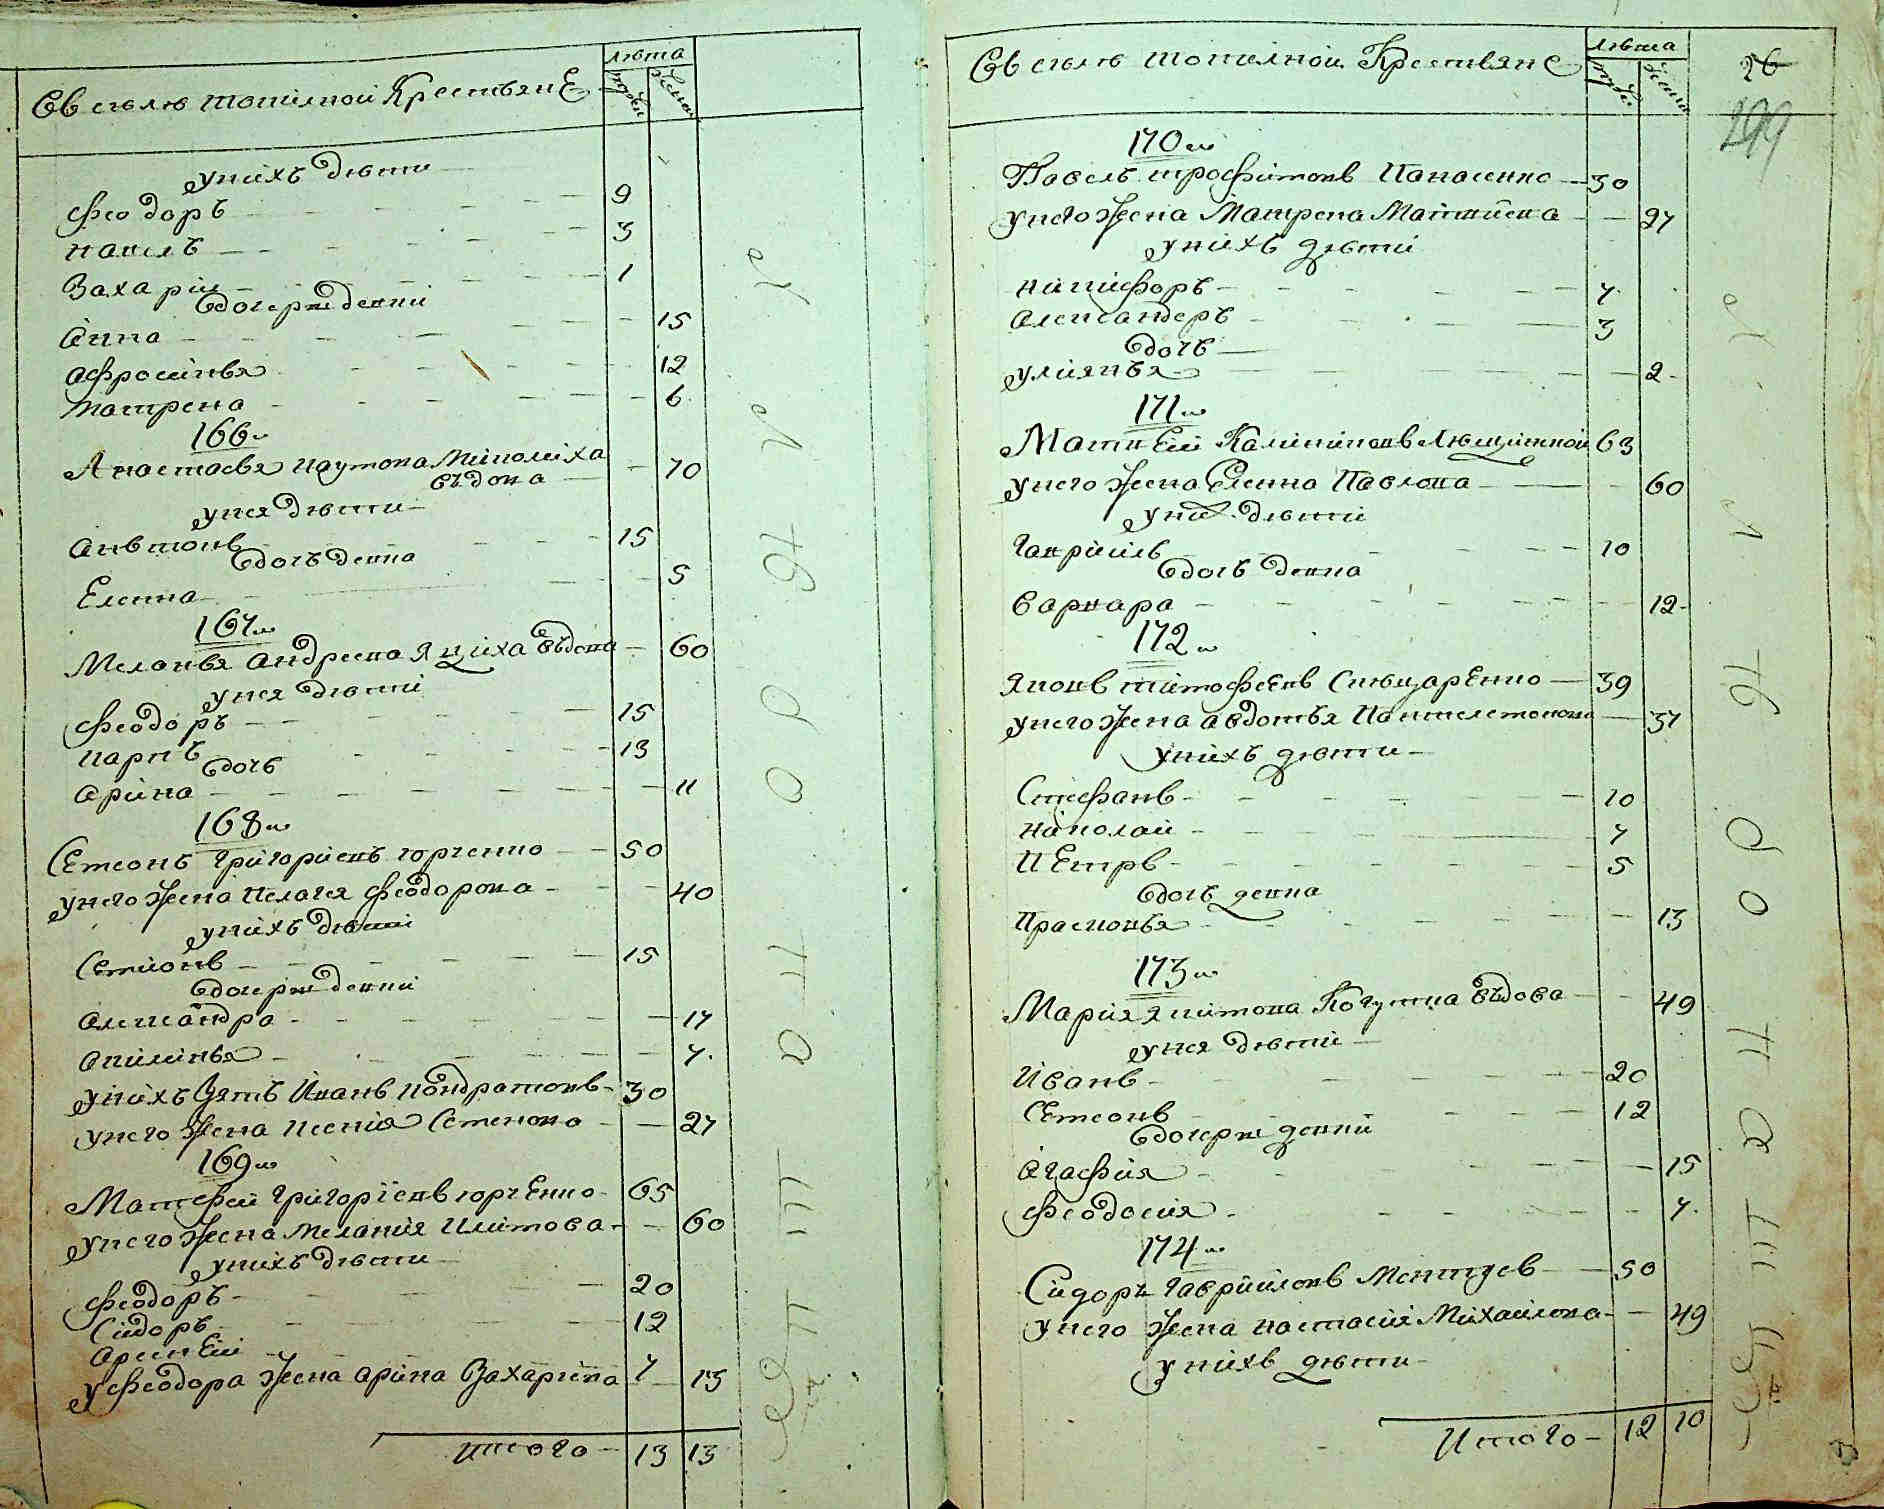 Въ селѣ Топилной Крестьяне
лѣта
мужеска
женска
у нихъ дѣти
Феодоръ 9
Павелъ 3
Захарій 1
дочери девки
Анна 15
Афросинья 12
Матрена 6
166
Анастасья Наумова
въдова 70
у нея дѣти
Антонъ 15
дочь девка
Елена 5
167
Меланья Андреева Яциха въдова 60
у нея дѣти
Феодоръ 15
Карпъ 13
дочь
Арина 11
168
Семенъ Григориевъ Юрченко 50
у него жена Пелагея Феодорова 40
у нихъ дѣти
Семионъ 15
дочери девки
Александра 17
Акилина 7
у нихъ зять Иванъ Кондратовъ 30
у него жена Ксения Семенова 27
169
Матфей Григориевъ Юрченко 65
у него жена Мелания Климова 60
у нихъ дѣти
Феодоръ 20
Сидоръ 12
Арсений 7
у Феодора жена Арина Захариева 13
Итого 13 13
Въ селѣ Топилной Крестьяне
лѣта
мужеска
женска
26
299
170
Павелъ Трофимовъ Панасенко 30
у него жена Матрена Матвиева 27
у нихъ дѣти
Никифоръ 7
Александеръ 3
дочь
Улиянья 2
171
Матвей Калиниковъ 63
у него жена Елена Павлова 60
у них дѣти
Гавриилъ 10
дочь девка
Варвара 12
172
Яковъ Тимофеевъ Слюсаренко 39
у него жена Авдотья Пантелемонова 37
у нихъ дѣти
Стефанъ 10
Николай 7
Петръ 5
дочь девка
Прасковья 13
173
Мария Якимова въдова 49
у нея дѣти
Иванъ 20
Семенъ 12
дочери девки
Агафия 15
Феодосия 7
174
Сидоръ Гавриловъ 50
у него жена Настасия Михаилова 49
у нихъ дѣти
Итого 12 10